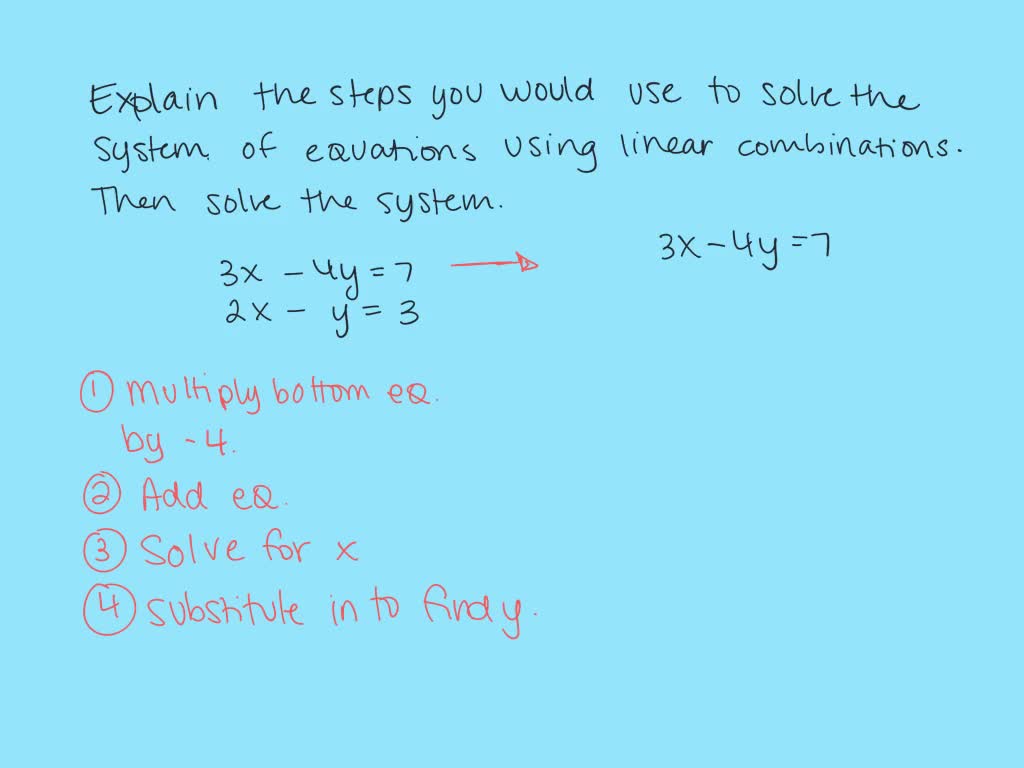 Explain the steps you would use to solve the
system of equations using linear combinations.
Then solve the system.
3x - 4y = 7
3x - 4y = 7
2x - y = 3
① Multiply bottom eq.
by -4.
② Add eq.
③ Solve for x
④ substitute in to find y.